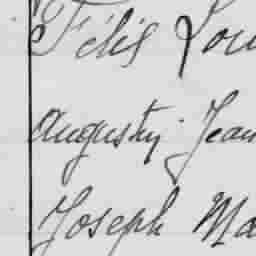 Félix Lou
Augustin Jean
Joseph Ma